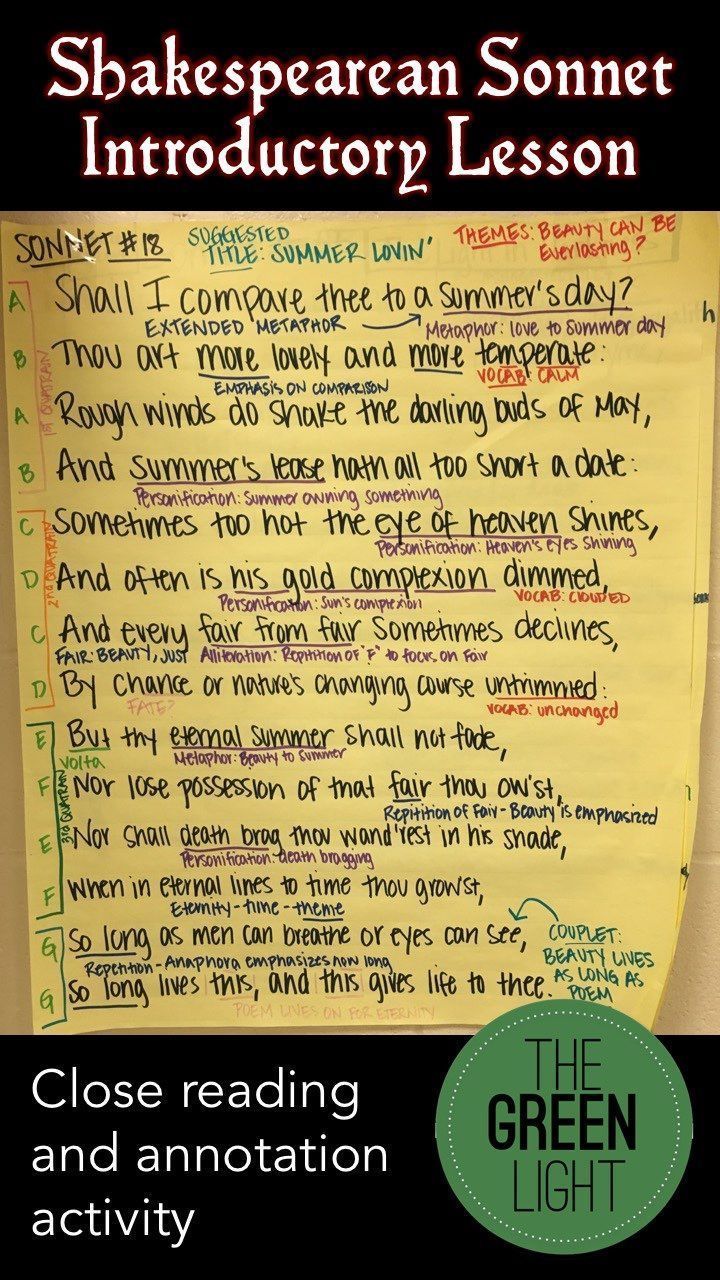 Shakespearean Sonnet
Introductory Lesson
SONNET #18
SUGGESTED
TITLE: SUMMER LOVIN'
THEMES: BEAUTY CAN BE
Everlasting?
A Shall I compare thee to a summer's day?
EXTENDED METAPHOR
Metaphor: love to summer day
B Thou art more lovely and more temperate:
EMPHASIS ON COMPARISON
VOCAB: CALM
1ST QUATRAIN
A Rough winds do shake the darling buds of May,
B And summer's lease hath all too short a date:
Personification: Summer owning something
C Sometimes too hot the eye of heaven shines,
Personification: Heaven's eyes shining
2nd QUATRAIN
D And often is his gold complexion dimmed,
Personification: Sun's complexion
VOCAB: CLOUDED
C And every fair from fair sometimes declines,
FAIR: BEAUTY, JUST
Alliteration: Reptition of "F" to focus on Fair
D By chance or nature's changing course untrimmed:
FATE?
VOCAB: unchanged
E But thy eternal summer shall not fade,
Volta
Metaphor: Beauty to Summer
3rd QUATRAIN
F Nor lose possession of that fair thou ow'st,
Repitition of Fair - Beauty is emphasized
E Nor shall death brag thou wand'rest in his shade,
Personification: death bragging
F When in eternal lines to time thou grow'st,
Eternity - time - theme
G So long as men can breathe or eyes can see,
Repetition - Anaphora emphasizes how long
G So long lives this, and this gives life to thee.
POEM LIVES ON FOR ETERNITY
COUPLET:
BEAUTY LIVES
AS LONG AS
POEM
h
Close reading
and annotation
activity
THE
GREEN
LIGHT